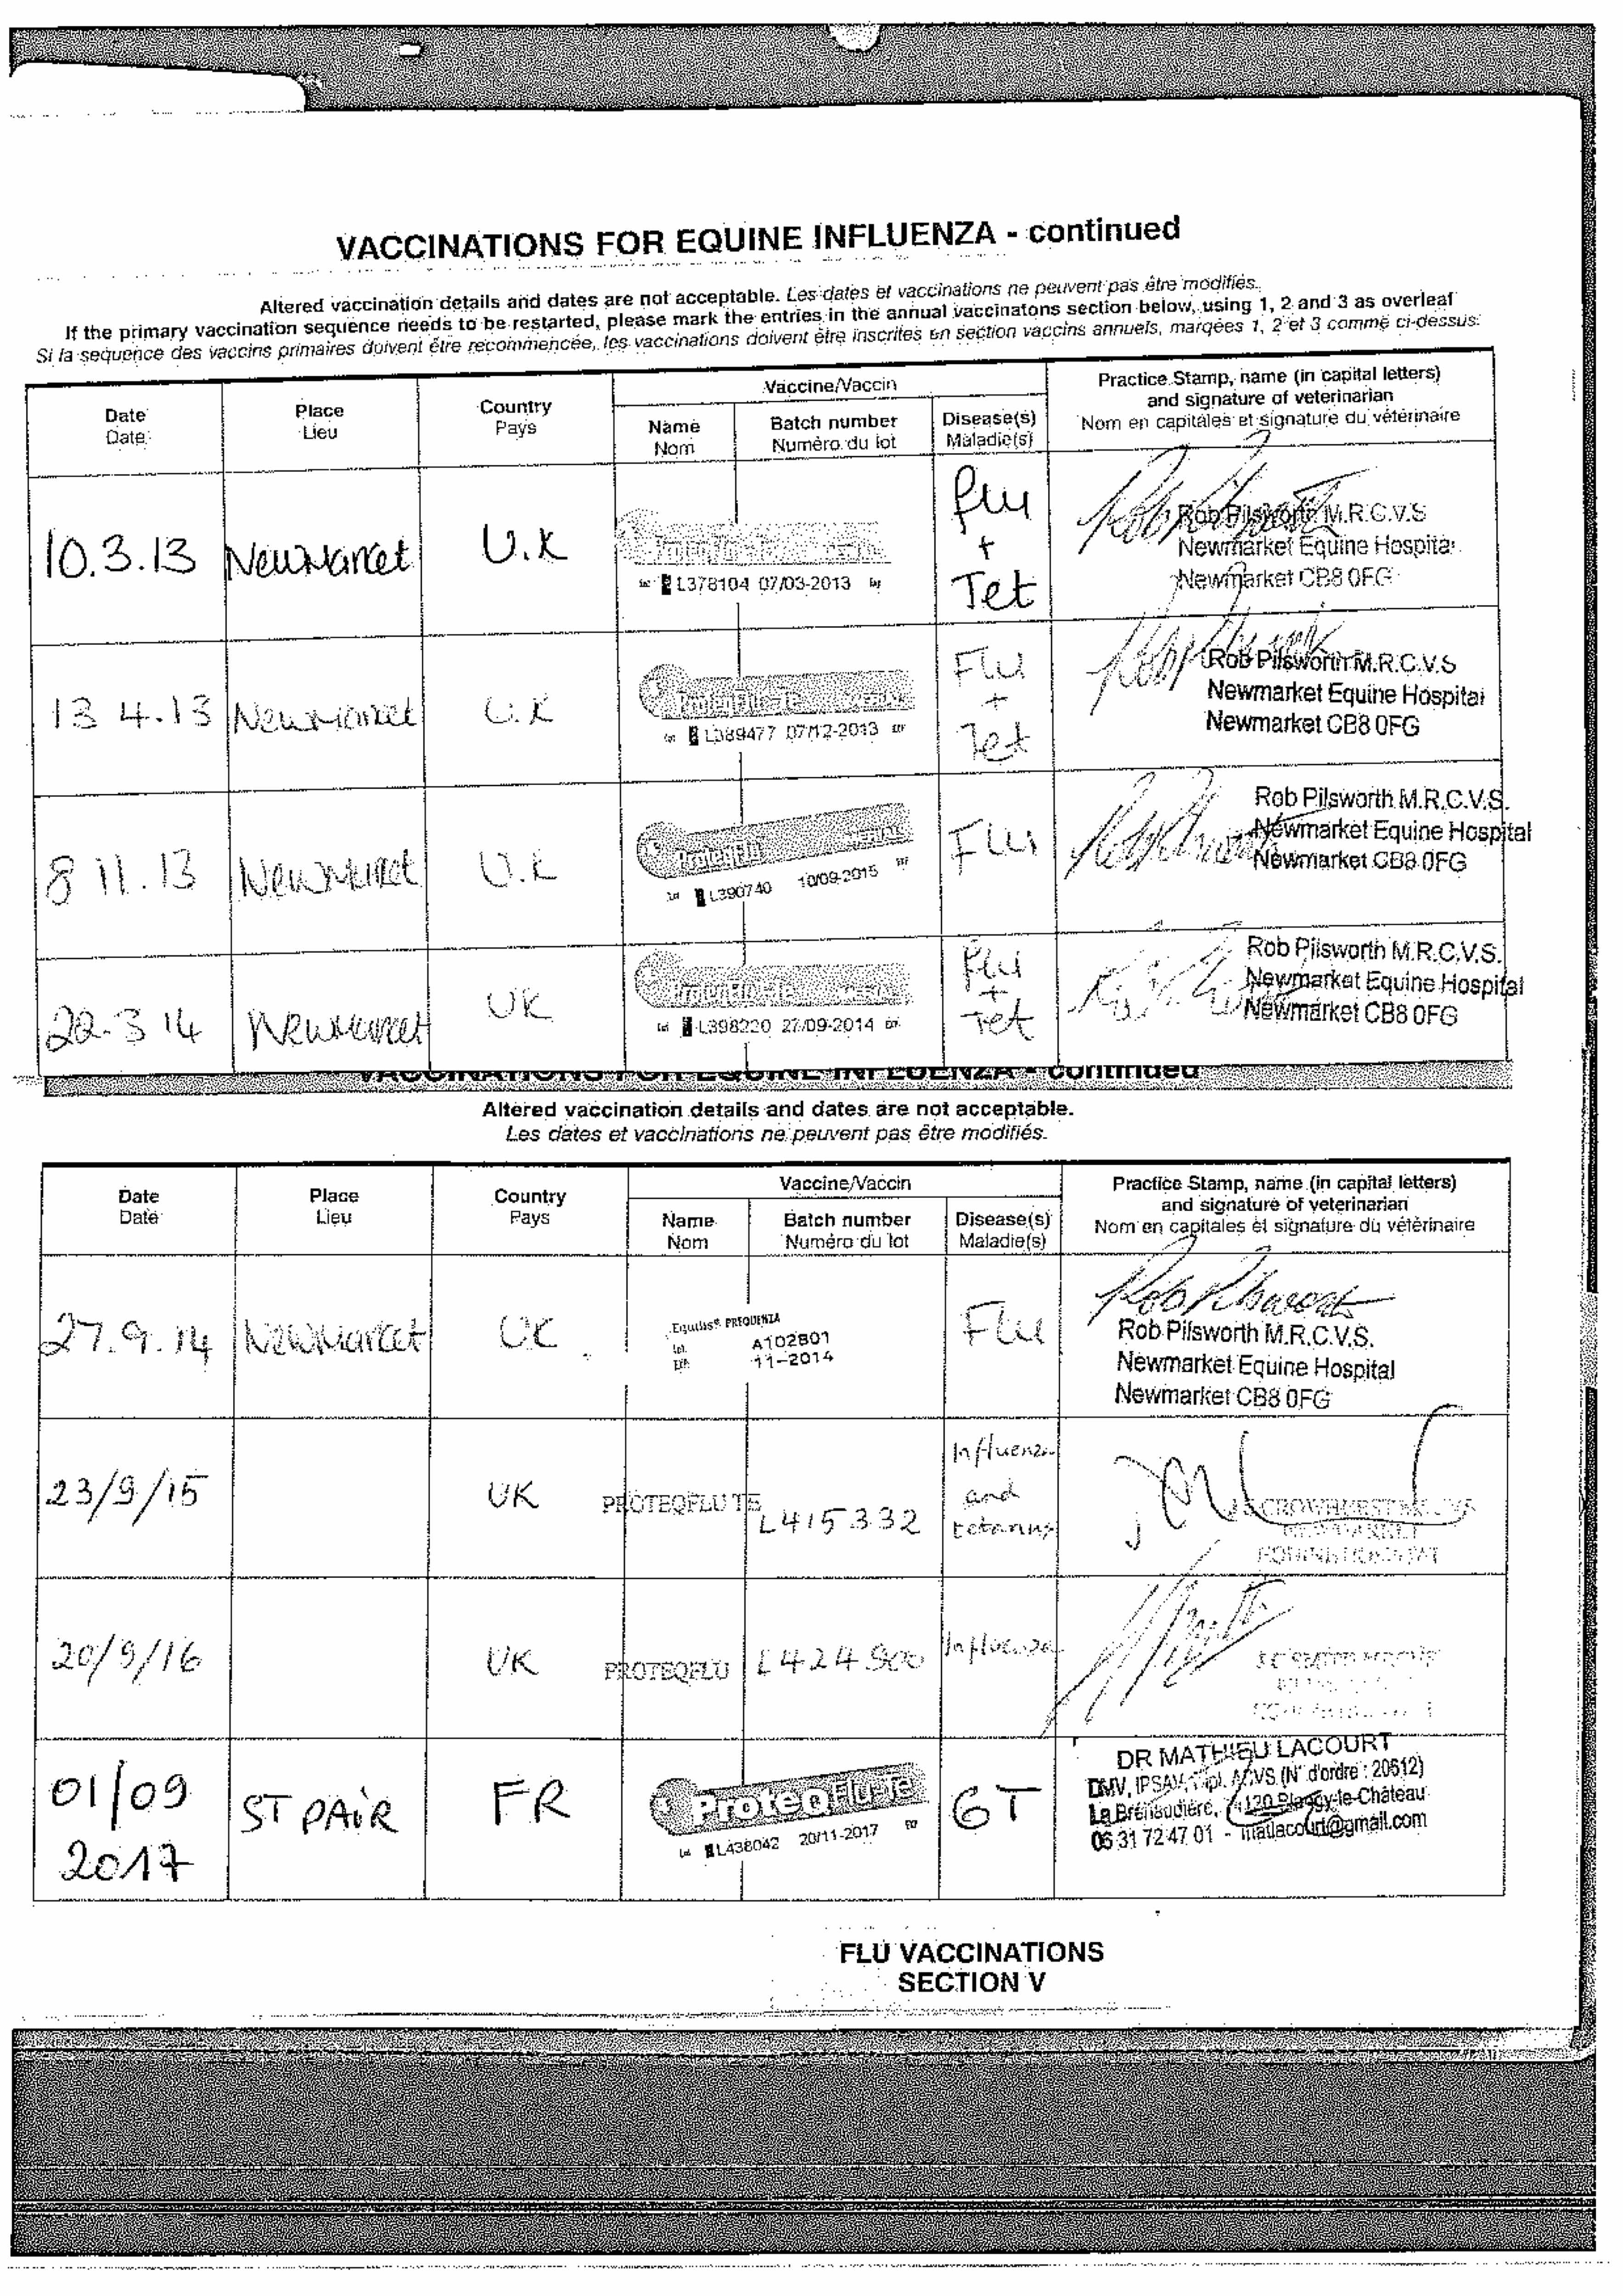 VACCINATIONS FOR EQUINE INFLUENZA - continued
Altered vaccination details and dates are not acceptable. Les dates et vaccinations ne peuvent pas être modifiés.
If the primary vaccination sequence needs to be restarted, please mark the entries in the annual vaccinatons section below, using 1, 2 and 3 as overleaf
Si la sequence des vaccins primaires doivent être recommencée, les vaccinations doivent être inscrites en section vaccins annuels, marqées 1, 2 et 3 comme ci-dessus.
Date Place Country Vaccine/Vaccin Practice Stamp, name (in capital letters)
Date Lieu Pays Name Batch number Disease(s) and signature of veterinarian
Nom Numéro du lot Maladie(s) Nom en capitales et signature du vétérinaire
10.3.13 Newmarket U.K ProteqFlu-Te Flu
+
Tet
L378104 07/03-2013
Rob Pilsworth M.R.C.V.S
Newmarket Equine Hospital
Newmarket CB8 0FG
13 4.13 Newmarket U.K ProteqFlu-Te MERIAL Flu
+
Tet
L389477 07/12-2013
Rob Pilsworth M.R.C.V.S
Newmarket Equine Hospital
Newmarket CB8 0FG
8 11.13 Newmarket U.K ProteqFlu MERIAL Flu
L390740 10/09-2015
Rob Pilsworth M.R.C.V.S.
Newmarket Equine Hospital
Newmarket CB8 0FG
22.3 14 Newmarket UK ProteqFlu-Te MERIAL Flu
+
Tet
L398220 27/09-2014
Rob Pilsworth M.R.C.V.S.
Newmarket Equine Hospital
Newmarket CB8 0FG
VACCINATIONS FOR EQUINE INFLUENZA - continued
Altered vaccination details and dates are not acceptable.
Les dates et vaccinations ne peuvent pas être modifiés.
Date Place Country Vaccine/Vaccin Practice Stamp, name (in capital letters)
Date Lieu Pays Name Batch number Disease(s) and signature of veterinarian
Nom Numéro du lot Maladie(s) Nom en capitales et signature du vétérinaire
27.9.14 Newmarket UK Equilis® PREQUENZA Flu
Lot. A102B01
EXP. 11-2014
Rob Pilsworth
Rob Pilsworth M.R.C.V.S.
Newmarket Equine Hospital
Newmarket CB8 0FG
23/9/15 UK PROTEQFLU TE L415332 Influenza
and
tetanus
CROWHURST
NEWMARKET
20/9/16 UK PROTEQFLU L424900 Influenza
01/09
2017
ST PAIR FR ProteqFlu-Te GT
L438042 20/11-2017
DR MATHIEU LACOURT
(N° d'ordre : 20612)
06 31 72 47 01 - matlacourt@gmail.com
FLU VACCINATIONS
SECTION V